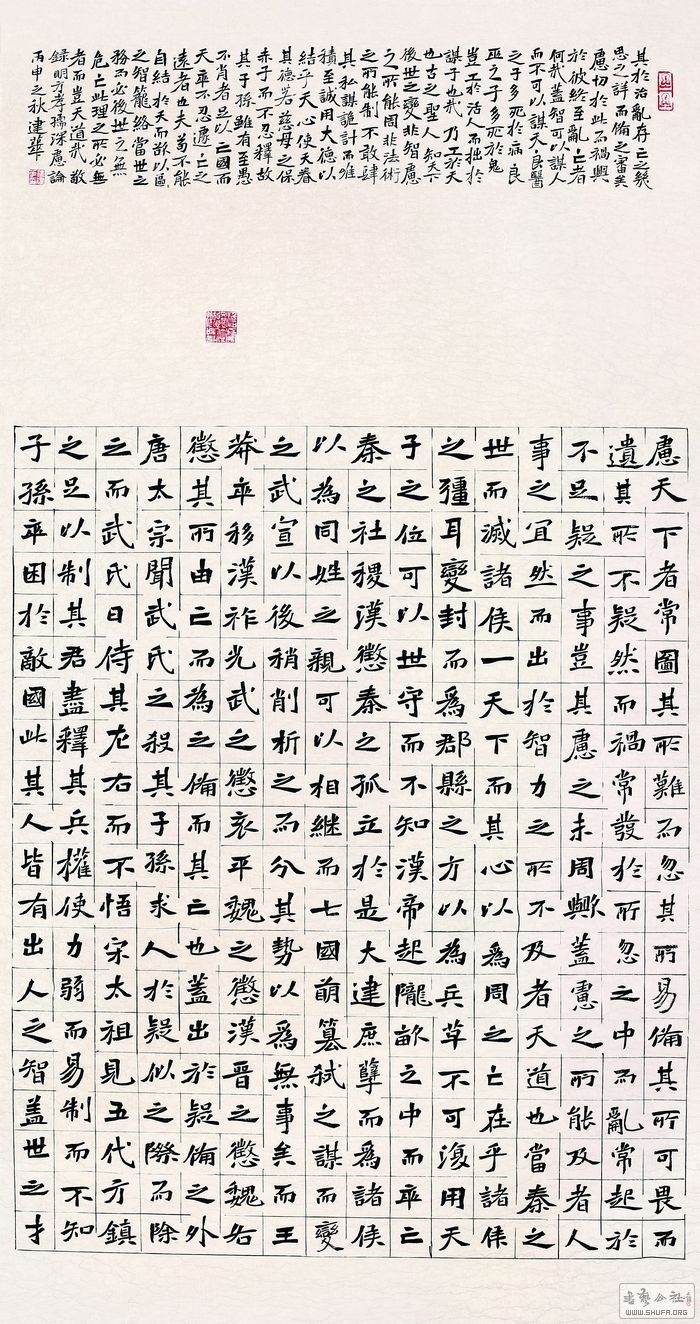 慮天下者常圖其所難而忽其所易備其所可畏而
遺其所不疑然而禍常發於所忽之中而亂常起於
不足疑之事豈其慮之未周歟蓋慮之所能及者人
事之宜然而出於智力之所不及者天道也當秦之
世而滅諸侯一天下而其心以為周之亡在乎諸侯
之彊耳變封而為郡縣之方以為兵革不可復用天
子之位可以世守而不知漢帝起隴畝之中而卒亡
秦之社稷漢懲秦之孤立於是大建庶孽而為諸侯
以為同姓之親可以相繼而七國萌篡弒之謀而變
之武宣以後稍削析之而分其勢以為無事矣而王
莽卒移漢祚光武之懲哀平魏之懲漢晉之懲魏各
懲其所由亡而為之備而其亡也蓋出於疑備之外
唐太宗聞武氏之殺其子孫求人於疑似之際而除
之而武氏日侍其左右而不悟宋太祖見五代方鎮
之足以制其君盡釋其兵權使力弱而易制而不知
子孫卒困於敵國此其人皆有出人之智蓋世之才
其於治亂存亡之幾
思之詳而備之審矣
慮切於此而禍興
於彼終至亂亡者
何哉蓋智可以謀人
而不可以謀天良醫
之子多死於病良
巫之子多死於鬼
豈工於活人而拙於
謀子也哉乃工於天
也古之聖人知天下
後世之變非智慮
之所能周非法術
之所能制不敢肆
其私謀詭計而唯
積至誠用大德以
結乎天心使天眷
其德若慈母之保
赤子而不忍釋故
其子孫雖有至愚
不肖者足以亡國而
天卒不忍遽亡之
遠者也夫苟不能
自結於天而欲以區
之智籠絡當世之
務而必後世之無
危亡此理之所必無
者而豈天道哉敬
錄明方孝孺深慮論
丙申之秋建華
WWW.SHUFA.ORG